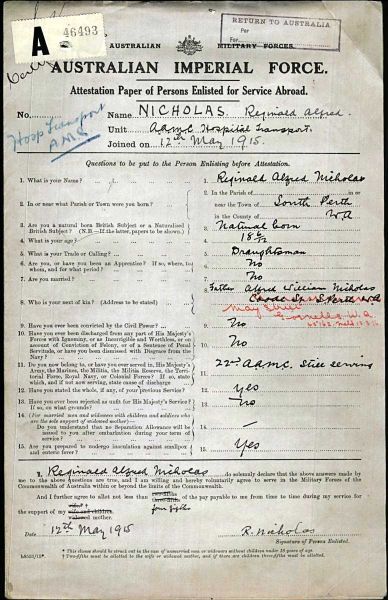 A 46493
RETURN TO AUSTRALIA
Per
For
AUSTRALIAN MILITARY FORCES.
AUSTRALIAN IMPERIAL FORCE.
Attestation Paper of Persons Enlisted for Service Abroad.
Hosp Transport
AMC
No. Name NICHOLAS. Reginald Alfred.
Unit A.A.M.C. Hospital Transport.
Joined on 12th May 1915.
Questions to be put to the Person Enlisting before Attestation.
1. What is your Name? 1. Reginald Alfred Nicholas
2. In or near what Parish or Town were you born? 2. In the Parish of in or
near the Town of South Perth
in the County of WA
3. Are you a natural born British Subject or a Naturalised
British Subject? (N.B.—If the latter, papers to be shown.) 3. Natural Born
4. What is your age? 4. 18
5. What is your Trade or Calling? 5. Draughtsman
6. Are you, or have you been an Apprentice? If so, where, to
whom, and for what period? 6. No
7. Are you married? 7. No
8. Who is your next of kin? (Address to be stated) 8. Father Alfred William Nicholas
St S. Perth WA
May Street
W.A
9. Have you ever been convicted by the Civil Power? 9. No
10. Have you ever been discharged from any part of His Majesty's
Forces with Ignominy, or as Incorrigible and Worthless, or on
account of Conviction of Felony, or of a Sentence of Penal
Servitude, or have you been dismissed with Disgrace from the
Navy? 10. No
11. Do you now belong to, or have you ever served in, His Majesty's
Army, the Marines, the Militia, the Militia Reserve, the Territorial
Force, Royal Navy, or Colonial Forces? If so, state
which, and if not now serving, state cause of discharge 11. 22nd A.A.M.C. Still serving
12. Have you stated the whole, if any, of your previous Service? 12. Yes
13. Have you ever been rejected as unfit for His Majesty's Service?
If so, on what grounds? 13. No
14. (For married men and widowers with children and soldiers who
are the sole support of widowed mother)—
Do you understand that no Separation Allowance will be
issued to you after embarkation during your term of
service? 14.
15. Are you prepared to undergo inoculation against smallpox
and enteric fever? 15. Yes
I, Reginald Alfred Nicholas do solemnly declare that the above answers made
by me to the above questions are true, and I am willing and hereby voluntarily agree to serve in the Military Forces of the
Commonwealth of Australia within or beyond the limits of the Commonwealth.
And I further agree to allot not less than two-fifths of the pay payable to me from time to time during my service for
four fifths
the support of my wife and children
widowed mother.
Date 12th May 1915 R. Nicholas
Signature of Person Enlisted.
* This clause should be struck out in the case of unmarried men or widowers without children under 18 years of age.
† Two-fifths must be allotted to the wife, and if there are children three-fifths must be allotted.